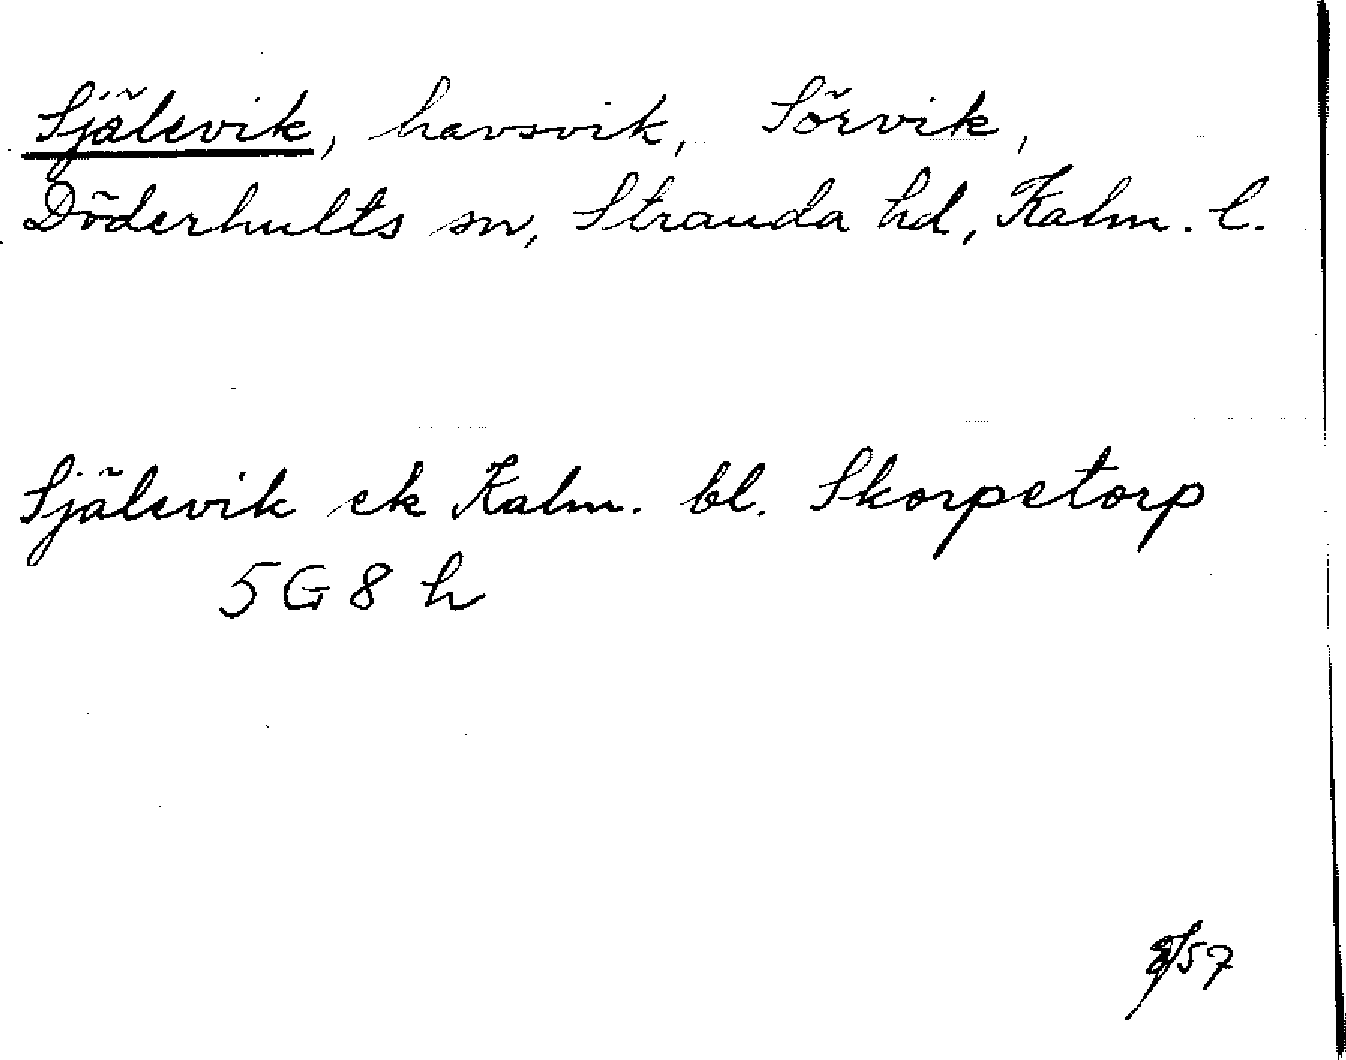 Själevik, havsvik, Sörvik,
Döderhults sn, Stranda hd, Kalm. l.
Själevik ek Kalm. bl. Skorpetorp
5G8h
57